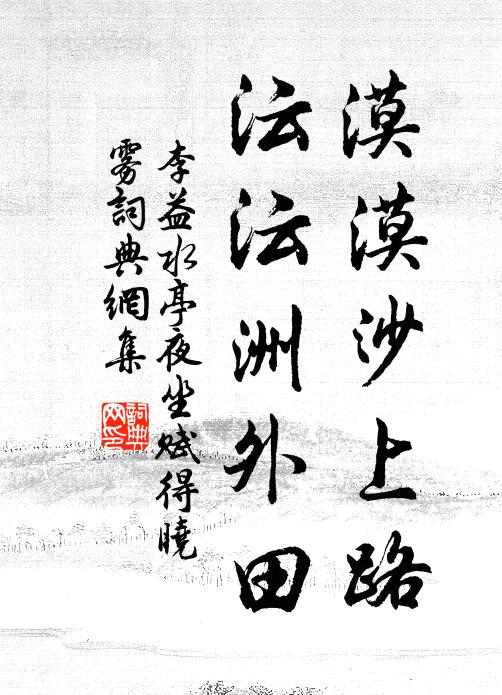 漠漠沙上路
沄沄洲外田
李益水亭夜坐賦得曉
雾詞典網集
詞典
网印